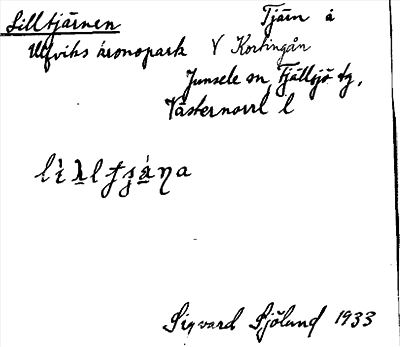 Lilltjärnen Tjärn å
Ulfviks kronopark V Kortingån
Junsele sn Fjällsjö tg,
Västernorrl l
Sigvard Sjölund 1933